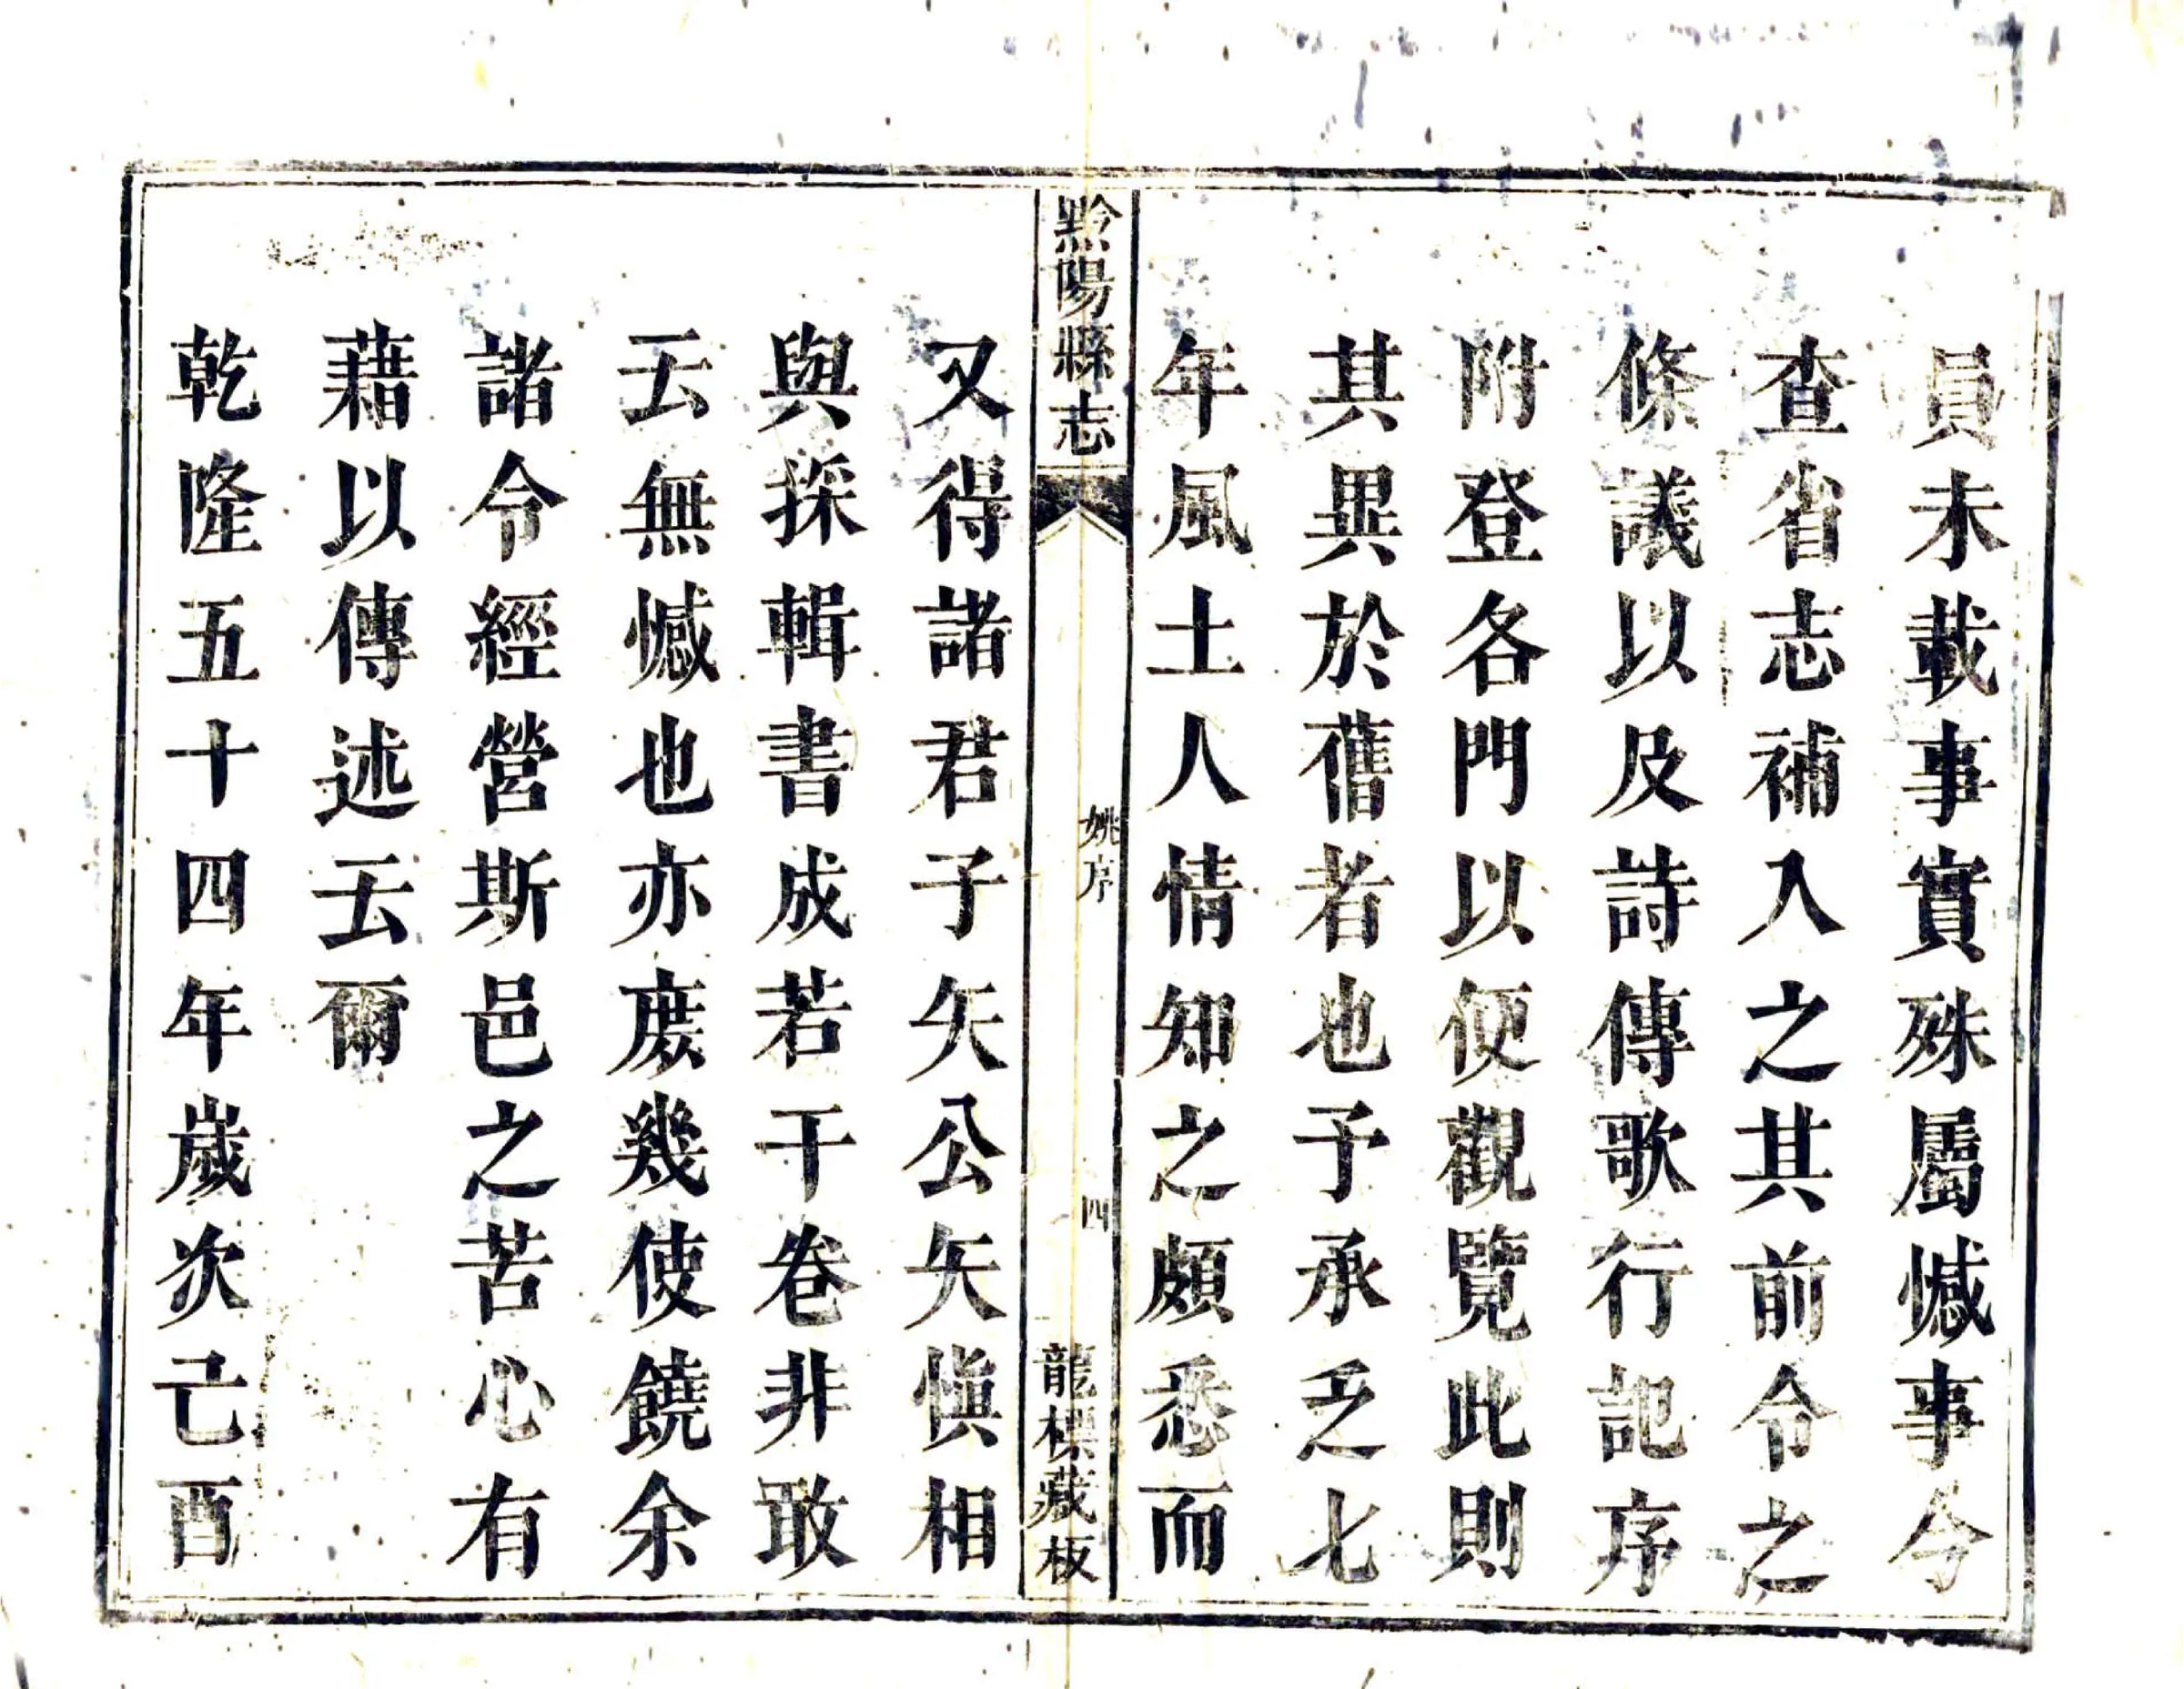 員未載事實殊屬憾事今
查省志補入之其前令之
條議以及詩傳歌行記序
附登各門以便觀覽此則
其異於舊者也予承乏七
年風土人情知之頗悉而
黔陽縣志
姚序
四
龍標藏板
又得諸君子矢公矢愼相
與採輯書成若干卷非敢
云無憾也亦庶幾使饒余
諸令經營斯邑之苦心有
藉以傳述云爾
乾隆五十四年歲次己酉